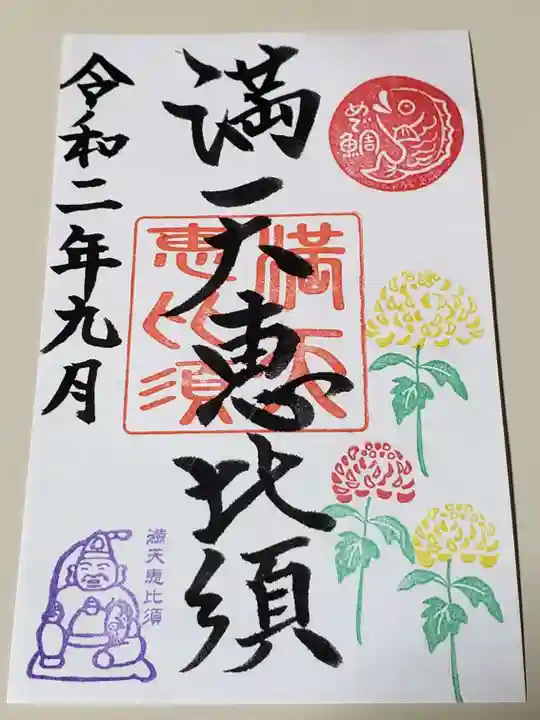 めで鯛
満天恵比須
満天
恵比須
令和二年九月
満天恵比須